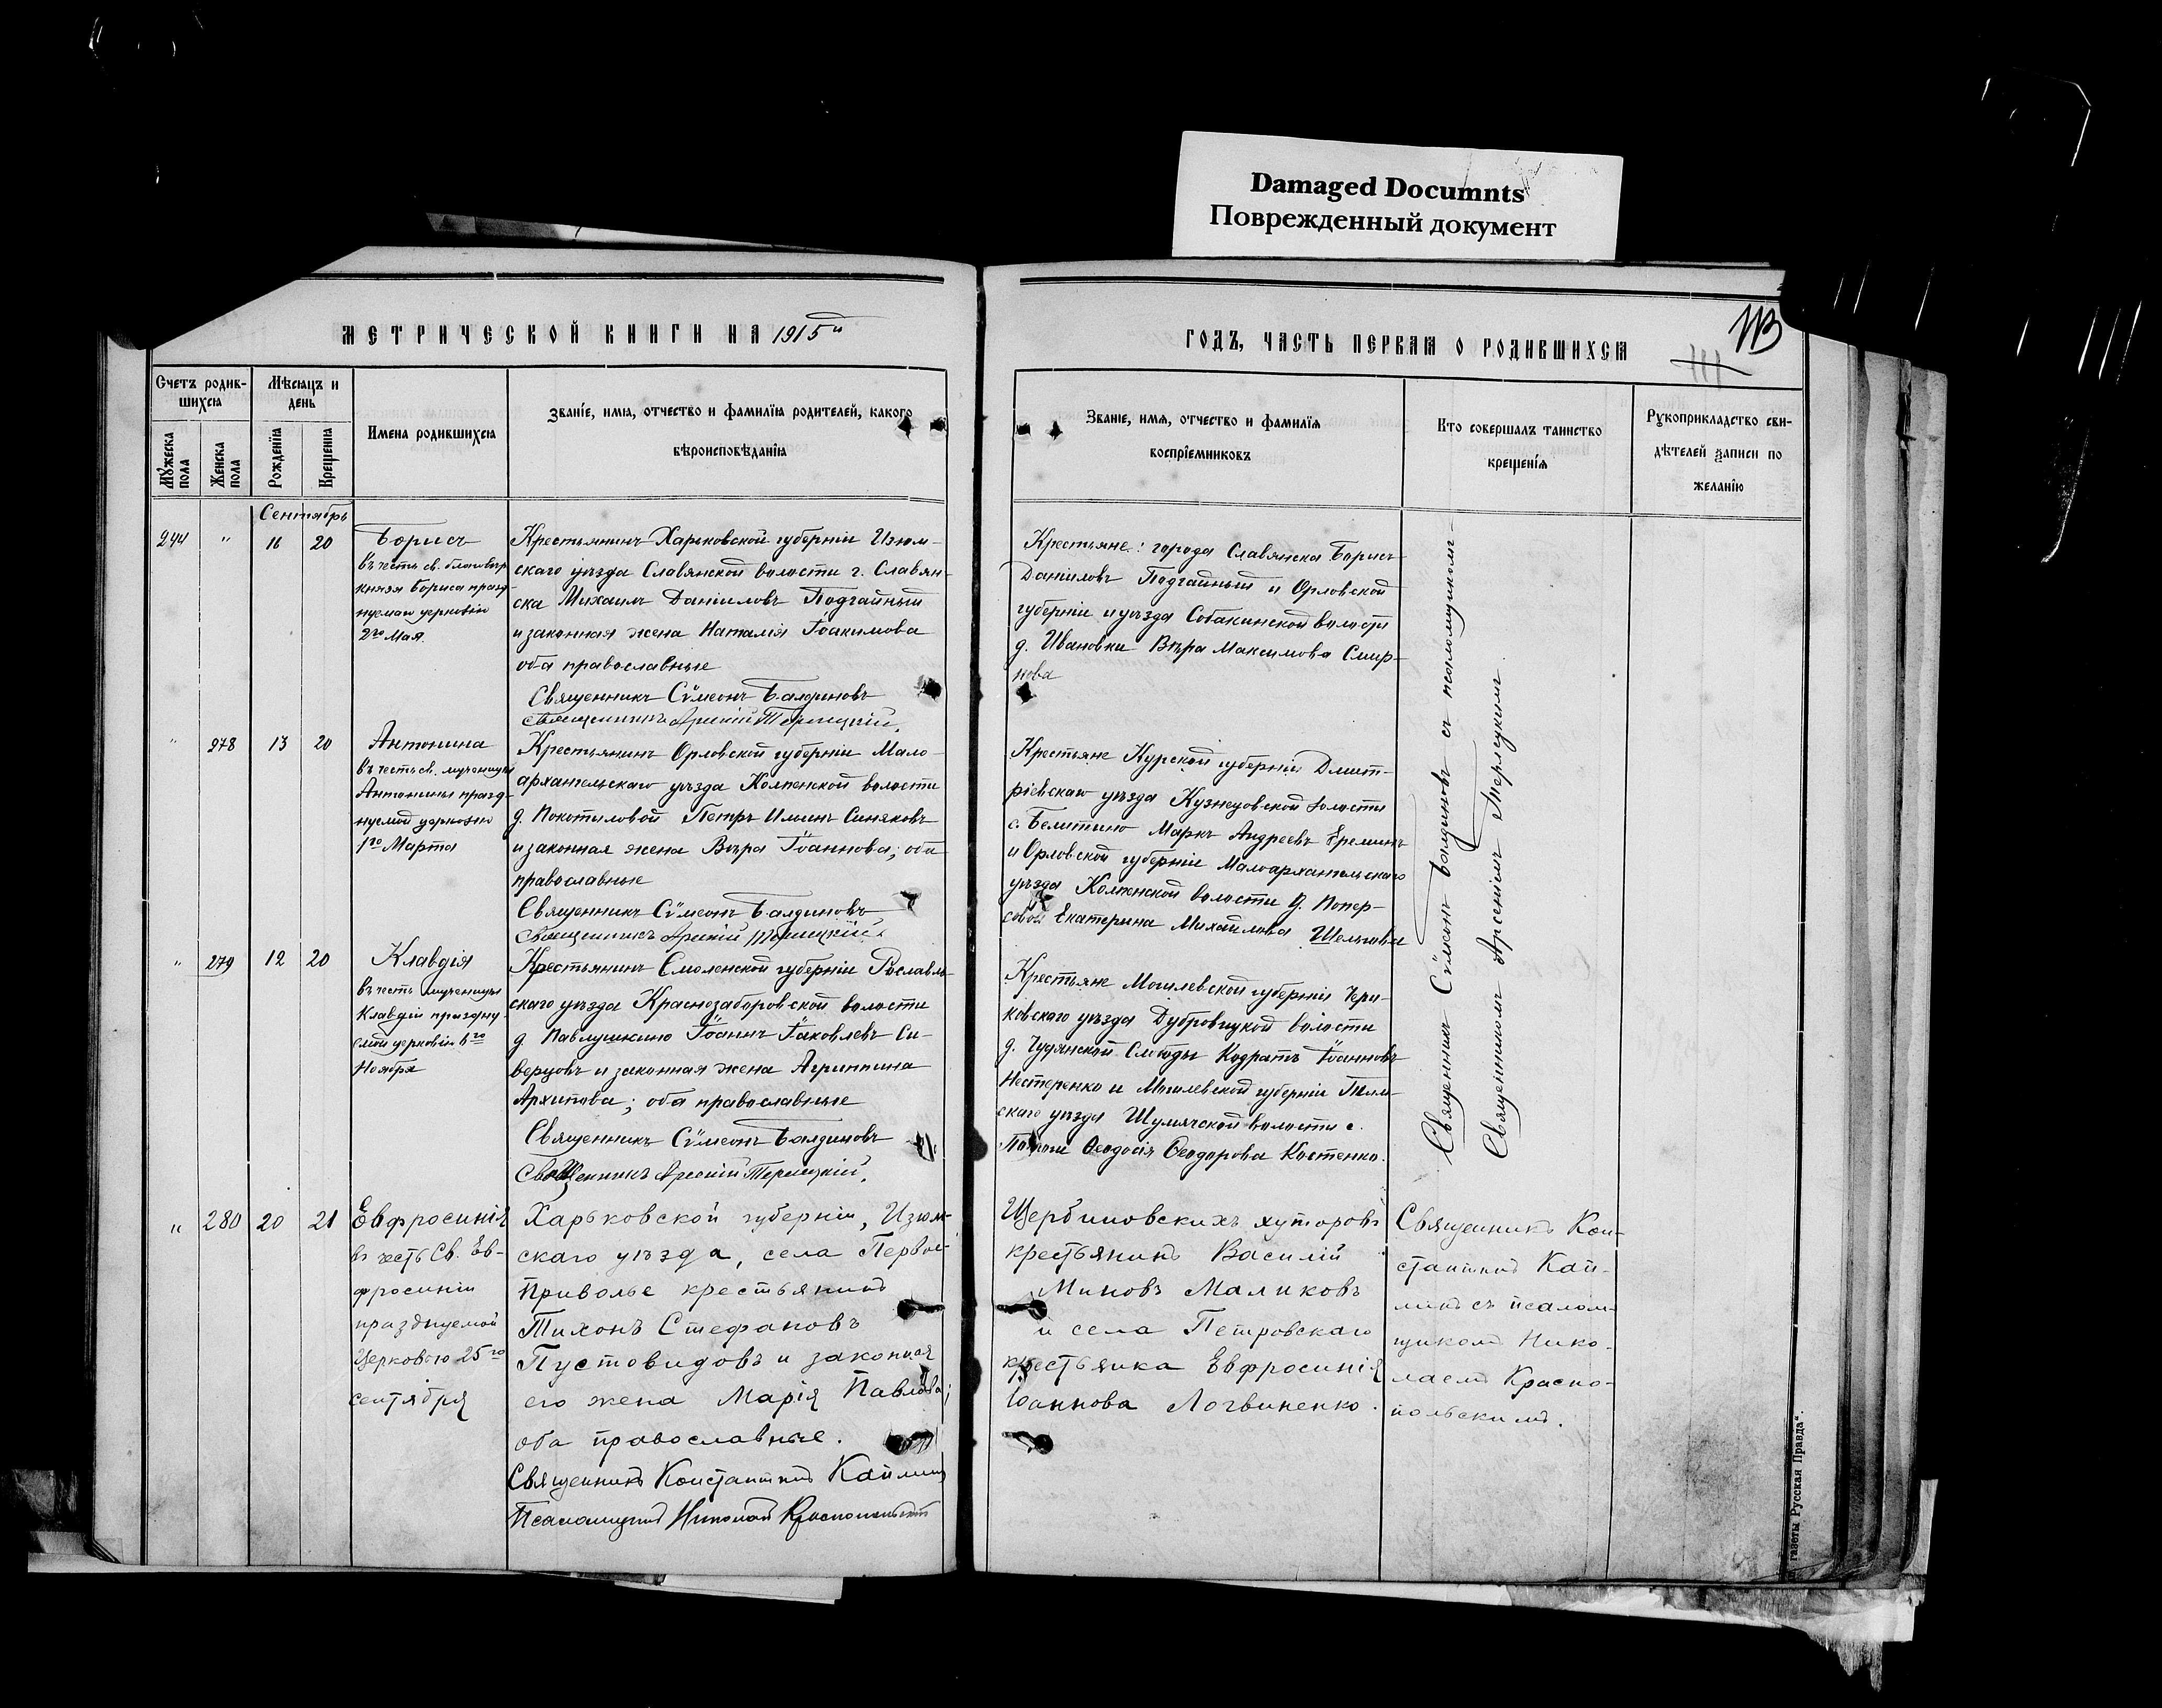 Damaged Documnts
Поврежденный документ
МЕТРИЧЕСКОЙ КНИГИ НА 1915й
ГОДЪ, ЧАСТЬ ПЕРВАЯ О РОДИВШИХСЯ
113
111
Счетъ родив-
шихся
Мужеска
пола
Женска
пола
Мѣсяцъ и
день
Рожденїя
Крещенїя
Имена родившихся
Званїе, имя, отчество и фамилїя родителей, какого
вѣроисповѣданїя
Званїе, имя, отчество и фамилїя
воспрїемниковъ
Кто совершалъ таинство
крещенїя
Рукоприкладство сви-
дѣтелей записи по
желанїю
Сентябрь
244 " 16 20
Борисъ
въ честь св. благовѣр
князя Бориса празд
нуемаго церковію
2го Мая.
Крестьянинъ Харьковской губерніи Изюм-
скаго уѣзда Славянской волости г. Славян-
ска Михаилъ Даніиловъ Подгайный
и законная жена Наталія Іоакимова
оба православные
Священникъ Сѷмеонъ Балдиновъ
Священникъ Арсеній Терлецкій.
Крестьяне: города Славянска Борисъ
Даніиловъ Подгайный и Орловской
губерніи и уѣзда Собакинской волости
д. Ивановки Вѣра Максимова Смир-
нова
" 278 13 20
Антонина
въ честь св. мученицы
Антонины празд-
нуемой церковію
1го Марта
Крестьянинъ Орловской губерніи Мало-
архангельскаго уѣзда Колпенской волости
д. Покотиловой Петръ Ильинъ Синяковъ
и законная жена Вѣра Іоаннова; оба
православные
Священникъ Сѷмеонъ Балдиновъ
Священникъ Арсеній Терлецкій.
Крестьяне Курской губерніи Дмит-
ріевскаго уѣзда Кузнецовской волости
с. Белитино Маркъ Андреевъ Ереминъ
и Орловской губерніи Малоархангельскаго
уѣзда Колпенской волости д.
Екатерина Михайлова
" 279 12 20
Клавдія
въ честь мученицы
Клавдіи праздну
емой церковію 6го
Ноября
Крестьянинъ Смоленской губерніи Рославль-
скаго уѣзда Краснозаборовской волости
д. Павлушкино Іоаннъ Іаковлевъ Си-
верцовъ и законная жена Агриппина
Архипова; оба православные
Священникъ Сѷмеонъ Балдиновъ
Священникъ Арсеній Терлецкій.
Крестьяне Могилевской губерніи Чери-
ковскаго уѣзда Дубровицкой волости
д. Чудянской Слободы Кодратъ Іоанновъ
Нестеренко и Могилевской губерніи
скаго уѣзда Шумячской волости с.
Ѳеодосія Ѳеодорова Костенко.
Священникъ Сѷмеонъ Балдиновъ съ псаломщикомъ-
Священникомъ Арсеніемъ Терлецкимъ.
" 280 20 21
Евфросинія
въ честь Св. Ев-
фросиніи
празднуемой
Церковью 25го
сентября
Харьковской губерніи, Изюм-
скаго уѣзда, села Перво-
Приволье крестьянинъ
Тихонъ Стефановъ
Пустовидовъ и законная
его жена Марія Павлова;
оба православные.
Священникъ Константинъ Каплинъ
Псаломщикъ Николай Краснопольскій
Щербиновскихъ хуторовъ
крестьянинъ Василій
Миновъ Маликовъ
и села Петровскаго
крестьянка Евфросинія
Іоаннова Логвиненко.
Священникъ Кон-
стантинъ Кап-
линъ съ псалом-
щикомъ Нико-
лаемъ Красно-
польскимъ.
газеты „Русская Правда“.